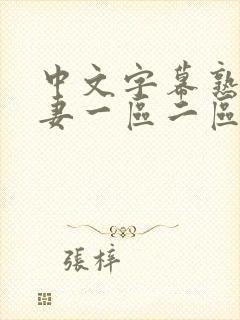 中文字幕熟
妻一區二區
張梓